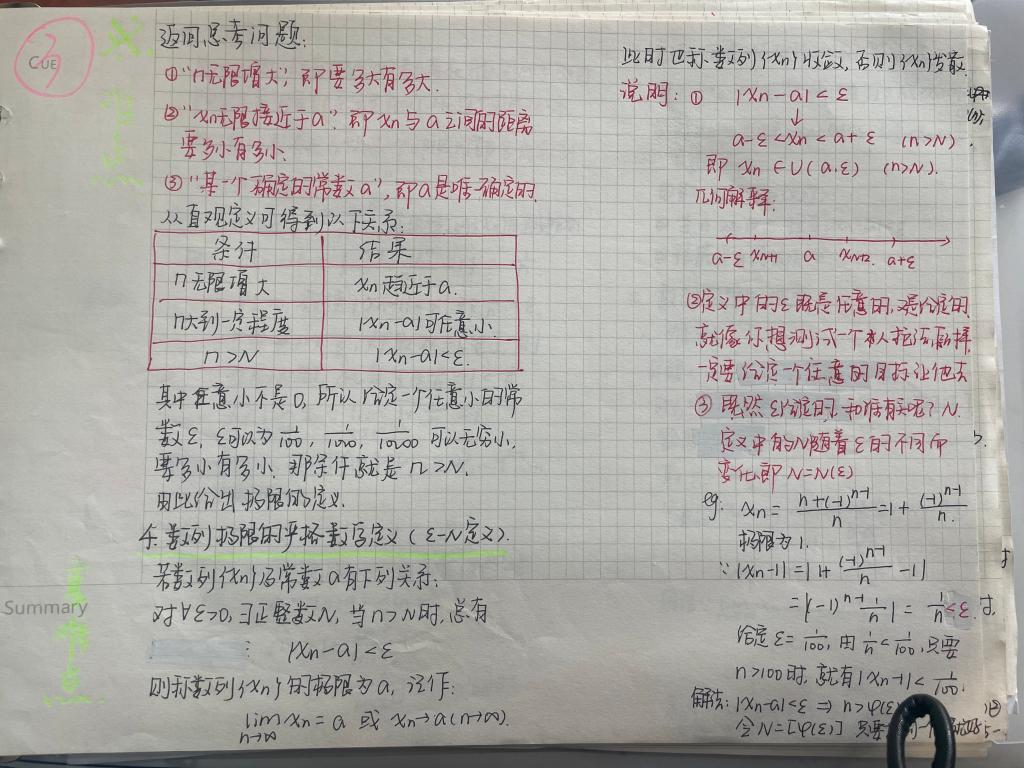 CUE
Summary
重难点
返回思考问题:
①"n无限增大", 即要多大有多大.
②"xn无限接近于a". 即xn与a之间的距离
要多小有多小.
③"某一个确定的常数a", 即a是唯一确定的.
从直观定义可得到以下关系:
条件 结果
n无限增大 xn趋近于a.
n大到一定程度 |xn-a|可任意小.
n>N |xn-a|<ε.
其中任意小不是0, 所以给定一个任意小的常
数ε, ε可以为1/100, 1/1000, 1/10000 可以无穷小,
要多小有多小. 那条件就是n>N.
由此给出极限的定义.
4. 数列极限的严格数学定义(ε-N定义).
若数列{xn}及常数a有下列关系:
对∀ε>0, ∃正整数N, 当n>N时, 总有
|xn-a|<ε
则称数列{xn}的极限为a, 记作:
lim n→∞ xn=a 或 xn→a(n→∞).
此时也称数列{xn}收敛, 否则{xn}发散.
说明: ① |xn-a|<ε
↓
a-ε<xn<a+ε (n>N).
即 xn∈U(a.ε) (n>N).
几何解释:
a-ε xn+1 a xn+2 a+ε
②定义中的ε既是任意的, 又是给定的
就像你想测试一个
一定要给定一个任意的目标让他去
③ 既然ε给定的, 和谁有关呢? N.
定义中的N随着ε的不同而
变化, 即 N=N(ε)
eg: xn= (n+(-1)^(n-1))/n =1+ (-1)^(n-1)/n.
极限为1.
∵|xn-1|=|1+ (-1)^(n-1)/n -1|
=|(-1)^(n-1) 1/n|= 1/n<ε.
给定ε=1/100, 由1/n<1/100, 只要
n>100时, 就有|xn-1|<1/100.
解法: |xn-a|<ε ⇒ n>φ(ε)
令N=[φ(ε)] 只要